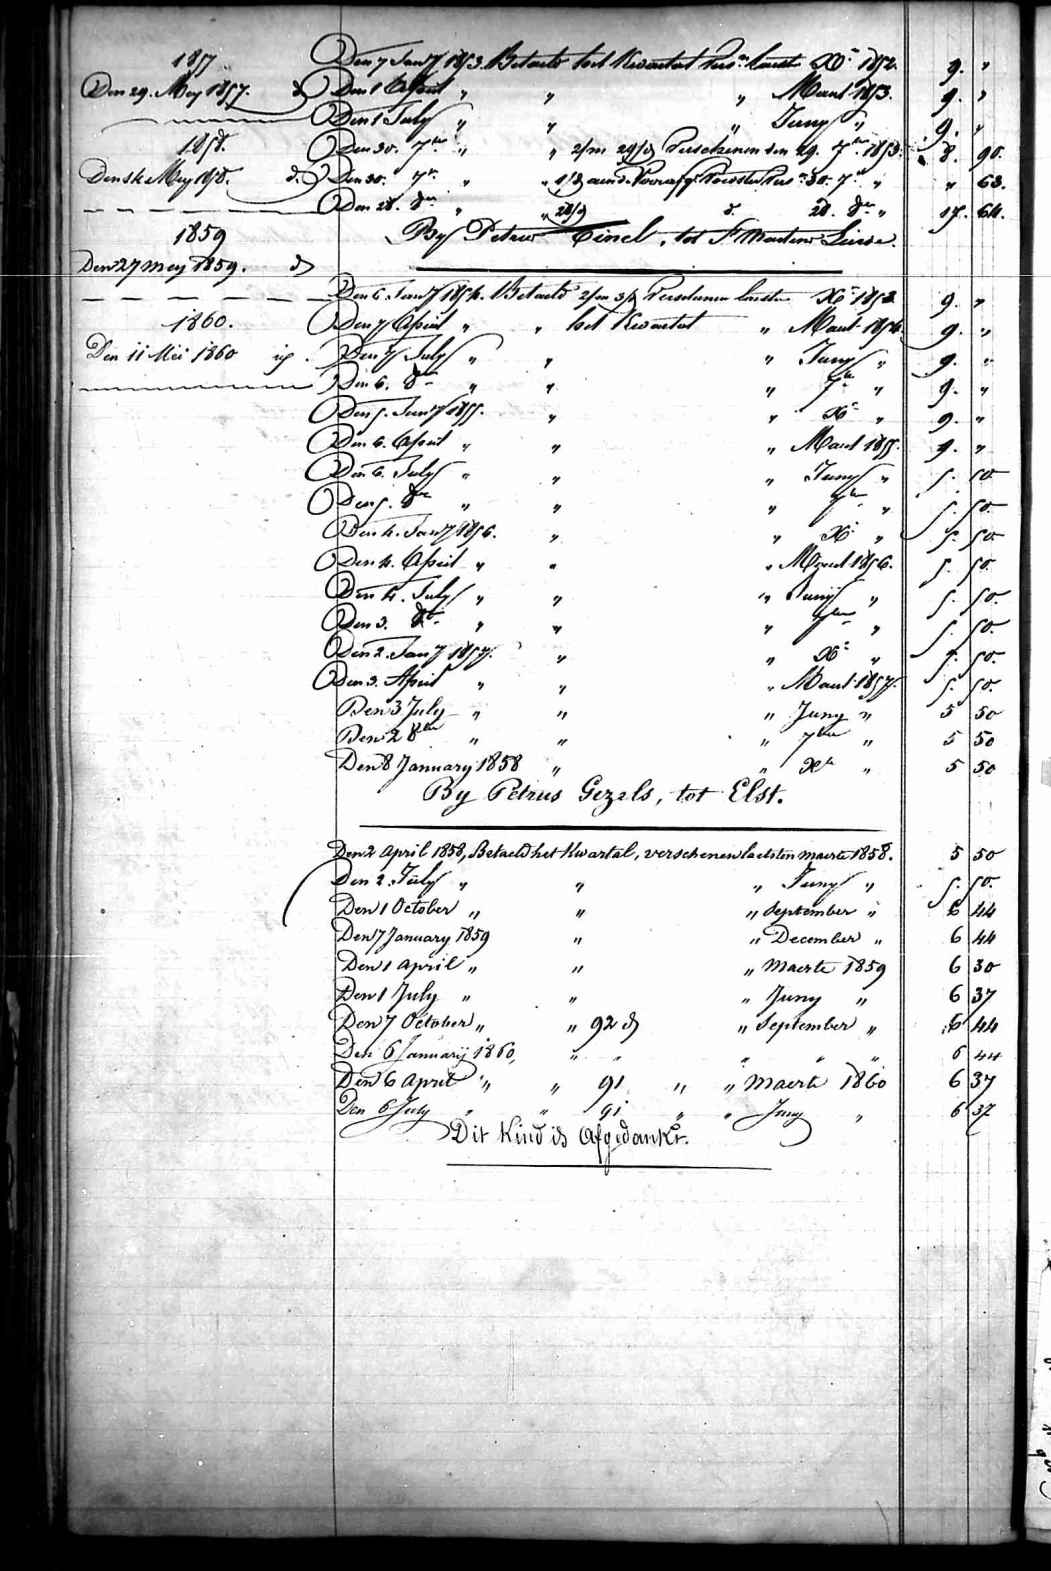 1857
Den 29. Mey 1857. d
1858.
Den 14 Mey 1858. d.
1859
Den 27 Mey 1859. d
1860.
Den 11 Mei 1860
Den 7 Jan^y 1853. Betaeld het Kwartal Vers^n laeste X^r 1852. 9. "
Den 1 April " " " Maert 1853. 9. "
Den 1 July " " " Juny " 9. "
Den 30. 7^er " " 2/m 29/d Verschenen den 29. 7^er 1853. 8. 90.
Den 30. 7^r " " 1/d aen d. Vers^n 30. 7^r " " 63.
Den 28. 8^er " " 28/d d. 28. 8^er " 17. 64.
By Petrus Cinel, tot
Den 6. Jan^y 1854. Betaeld 2/m 3/d Verschenen laeste X^r 1853 9. "
Den 7 April " " het Kwartal " Maert 1854. 9. "
Den 7 July " " " Juny " 9. "
Den 6. 8^er " " " 7^er " 9. "
Den 5. Jan^y 1855. " " X^r " 9. "
Den 6. April " " " Maert 1855. 9. "
Den 6. July " " " Juny " 5. 50.
Den 5. 8^er " " " 7^er " 5. 50.
Den 4. Jan^y 1856. " " X^r " 5. 50
Den 4. April " " " Maert 1856. 5. 50.
Den 4. July " " " Juny " 5. 50.
Den 3. 8^er " " " 7^ber " 5. 50.
Den 2. Jan^y 1857. " " X^r " 5. 50.
Den 3. April " " " Maert 1857. 5. 50.
Den 3 July " " " Juny " 5 50
Den 2 8^ber " " " 7^ber " 5 50
Den 8 January 1858 " " X^r " 5 50
By Petrus Gezels, tot Elst.
Den 2 April 1858, Betaeld het Kwartal, verschenen laetsten maerte 1858. 5 50
Den 2. July " " " Juny " 5. 50.
Den 1 October " " " September " 6 44
Den 7 January 1859 " " December " 6 44
Den 1 april " " " maerte 1859 6 30
Den 1 July " " " Juny " 6 37
Den 7 October " " 92 d " September " 6 44
Den 6 Januarij 1860, " " " " " 6 44
Den 6 April " " 91 " " maerte 1860 6 37
Den 6 July " " 91 " " Juny " 6 37
Dit Kind is Afgedankt.